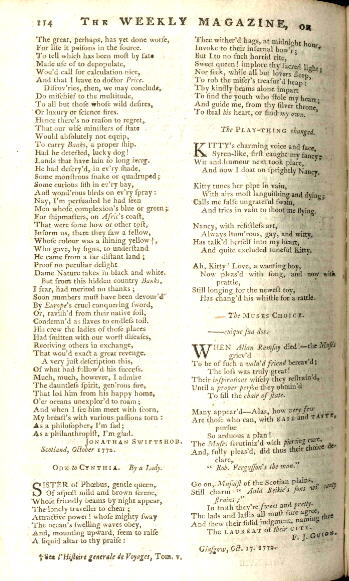 114 THE WEEKLY MAGAZINE, OR
The great, perhaps, has yet done worse,
For life it poisons in the source.
To tell which has been most by fate
Made use of to depopulate,
Wou'd call for calculation nice,
And that I leave to doctor Price.
Discov'ries, then, we may conclude,
Do mischief to the multitude,
To all but those whose wild desires,
Or luxury or science fires.
Hence there's no reason to regret,
That our wise ministers of state
Would absolutely not equip,
To carry Banks, a proper ship.
Had he detected, lucky dog!
Lands that have lain so long incog.
Had he descry'd, in ev'ry shade,
Some monstrous snake or quadruped;
Some curious fish in ev'ry bay,
And wond'rous birds on ev'ry spray:
Nay, I'm persuaded he had seen
Men whose complexion's blue or green;
For shipmasters, on Afric's coast,
That were some how or other tost,
Inform us, there they saw a fellow,
Whose colour was a shining yellow †,
Who gave, by signs, to understand
He came from a far distant land;
Proof no peculiar delight
Dame Nature takes in black and white.
But from this hidden country Banks,
I fear, had merited no thanks;
Soon numbers must have been devour'd
By Europe's cruel conquering sword,
Or, ravish'd from their native soil,
Condemn'd as slaves to endless toil.
His crew the ladies of those places
Had smitten with our worst diseases,
Receiving others in exchange,
That wou'd exact a great revenge.
A very just description this,
Of what had follow'd his success.
Much, much, however, I admire
The dauntless spirit, gen'rous fire,
That led him from his happy home,
O'er oceans unexplor'd to roam;
And when I see him meet with scorn,
My breast's with various passions torn:
As a philosopher, I'm sad;
As a philanthropist, I'm glad.
JONATHAN SWIFTSHOD.
Scotland, October 1772.
ODE to CYNTHIA. By a Lady.
SISTER of Phœbus, gentle queen,
Of aspect mild and brow serene,
Whose friendly beams by night appear,
The lonely traveller to chear;
Attractive power! whose mighty sway
The ocean's swelling waves obey,
And, mounting upward, seem to raise
A liquid altar to thy praise:
† See l'Histoire generale de Voyages, Tom. v.
Thee wither'd hags, at midnight hour,
Invoke to their infernal bow'r;
But I to no such horrid rite,
Sweet queen! implore thy sacred light;
Nor seek, while all but lovers sleep,
To rob the miser's treasur'd heap:
Thy kindly beams alone impart
To find the youth who stole my heart;
And guide me, from thy silver throne,
To steal his heart, or find my own.
The PLAY-THING changed.
KITTY's charming voice and face,
Syren-like, first caught my fancy;
Wit and humour next took place,
And now I doat on sprightly Nancy.
Kitty tunes her pipe in vain,
With airs most languishing and dying;
Calls me false ungrateful swain,
And tries in vain to shoot me flying.
Nancy, with resistless art,
Always hum'rous, gay, and witty,
Has talk'd herself into my heart,
And quite excluded tuneful Kitty.
Ah, Kitty! Love, a wanton boy,
Now pleas'd with song, and now with
prattle,
Still longing for the newest toy,
Has chang'd his whistle for a rattle.
The MUSES CHOICE.
—cuique sua dos.
WHEN Allan Ramsay died—the Muses
griev'd
To be of such a valu'd friend bereav'd;
The loss was truly great!
Their inspirations wisely they restrain'd,
Until a proper person they obtain'd
To fill the chair of state.
Many appear'd—Alas, how very few
Are those who can, with EASE and TASTE,
pursue
So arduous a plan!
The Muses scrutiniz'd with piercing care,
And, fully pleas'd, did thus their choice de-
clare,
" Rob. Fergusson's the man."
Go on, Musist of the Scotian plains,
Still charm " Auld Reikie's sons wi' pretty
strains;"
In truth they're sweet and pretty.
The lads and lasses all must sure agree,
And shew their solid judgment, naming thee
The LAUREAT of their CITY.
F. J. GUION.
Glasgow, Oct. 17. 1772.